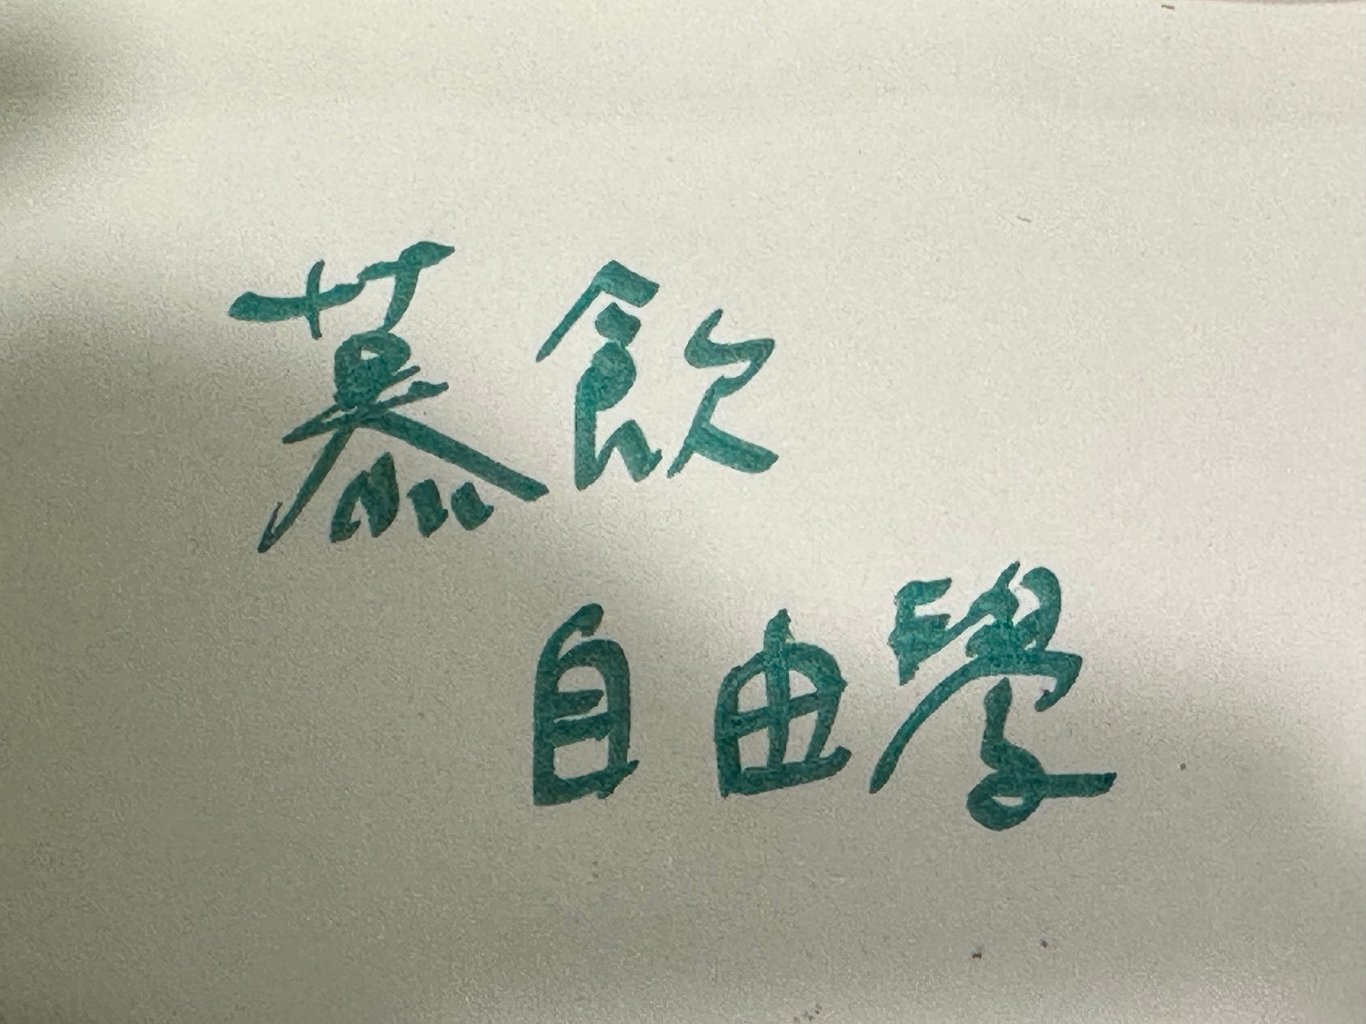 慕飲
自由學